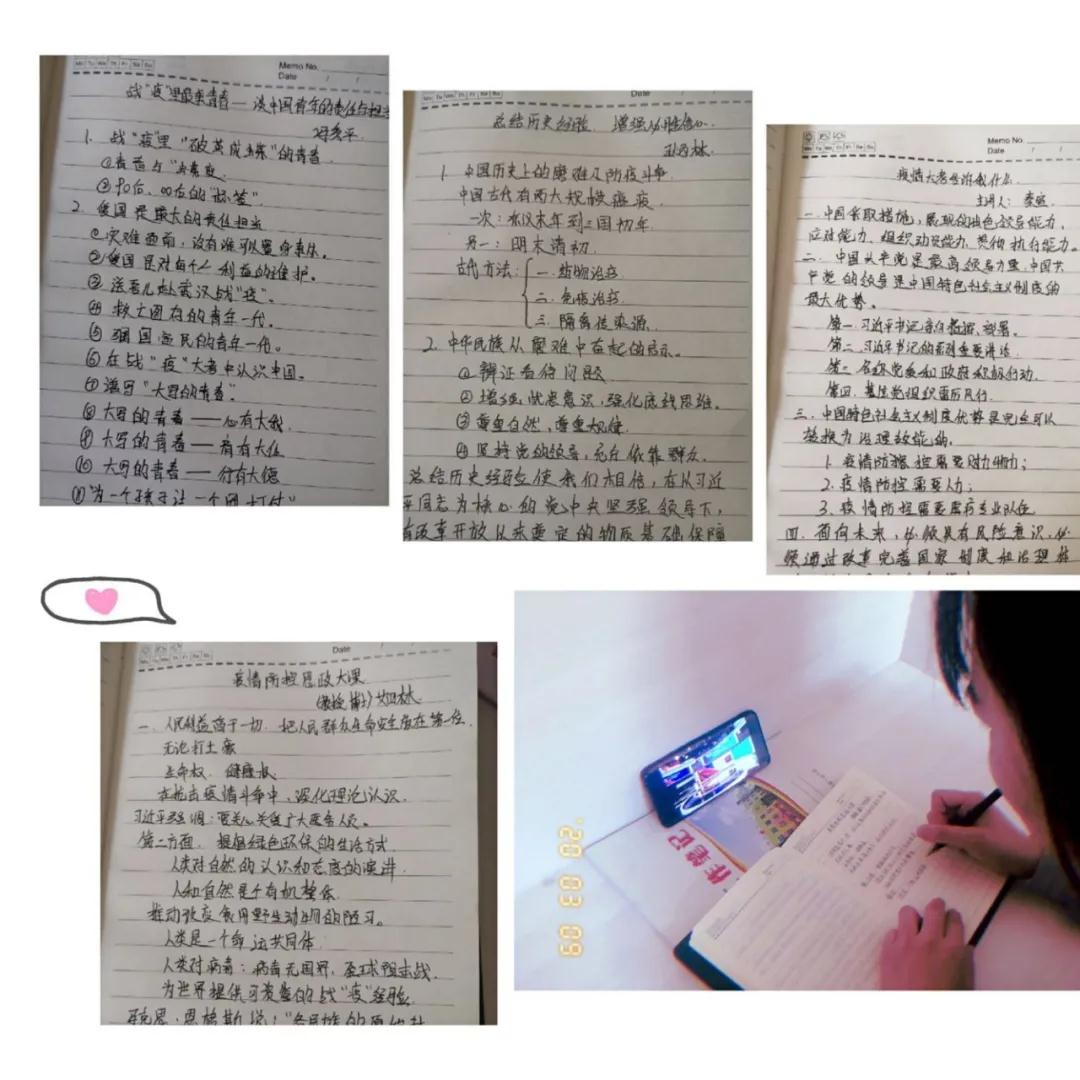 Memo No.
Date / /
战"疫"里最美青春——谈中国青年的责任与担当
冯秀军
1. 战"疫"里"破茧成蝶"的青春
②90后、00后的"标签"
2. 爱国是最大的责任担当
①灾难面前,没有谁可以置身事外。
②爱国是对每个人利益的维护。
武汉战"疫"。
④救亡图存的青年一代。
⑤强国富民的青年一代。
⑥在战"疫"大考中认识中国。
⑦谱写"大写的青春"
⑧大写的青春——心有大我
⑨大写的青春——肩有大任
⑩大写的青春——行有大德
Date
总结历史经验 增强必胜信心.
1. 中国历史上的磨难及防疫斗争
中国古代有两大规模瘟疫
一次:东汉末年到三国初年
另一:明末清初
古代方法: 一. 药物治疫
二. 免疫治疫
三. 隔离传染源
2. 中华民族从磨难中奋起的启示。
①辩证看待问题
②增强忧患意识,强化底线思维。
③尊重自然,尊重规律
④坚持党的领导,充分依靠群众
总结历史经验使我们相信,在以习近
平同志为核心的党中央坚强领导下,
有改革开放以来奠定的物质基础保障
Memo No.
Date / /
疫情大考告诉我什么.
主讲人: 秦宣
一. 中国采取措施,展现的出色领导能力,
应对能力、组织动员能力、贯彻执行能力。
二. 中国共产党是最高领导力量,中国共
产党的领导是中国特色社会主义制度的
最大优势。
第一. 习近平书记亲自指挥、部署。
第二. 习近平书记的系列重要讲话
第三. 各级党委和政府积极行动.
第四. 基层党组织雷厉风行.
三. 中国特色社会主义制度优势是完全可以
转换为治理效能的.
1. 疫情防控需要财力物力;
2. 疫情防控需要人力;
3. 疫情防控需要医疗专业队伍
四. 面向未来,必须具有风险意识,必
须通过改革完善国家制度和治理体
Date
疫情防控思政大课
一. 人民利益高于一切. 把人民群众生命安全放在第一位.
生命权. 健康权
在抗击疫情斗争中,深化理论认识.
习近平强调:要关心关爱广大医务人员。
第二方面. 提倡绿色环保的生活方式
人类对自然的认识和态度的演进
人和自然是个有机整体.
推动改变食用野生动物的陋习。
人类是一个命运共同体
人类对病毒:病毒无国界,全球阻击战.
为世界提供可借鉴的战"疫"经验
马克思·恩格斯说:
作笔记
'20 03 09